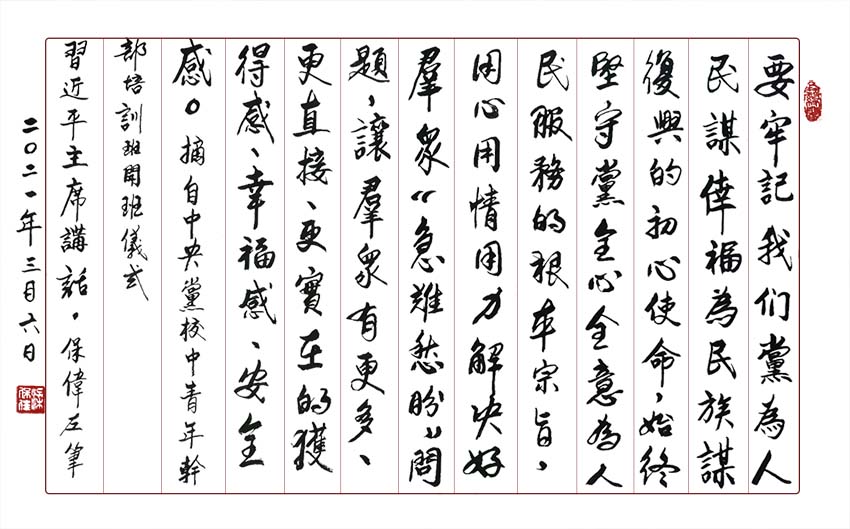 要牢記我们黨為人
民謀倖福為民族謀
復興的初心使命，始終
堅守黨全心全意為人
民服務的根本宗旨，
用心用情用力解决好
羣衆“急難愁盼”問
題，讓羣衆有更多、
更直接、更實在的獲
得感、幸福感、安全
感。摘自中央黨校中青年幹
部培訓班開班儀式
習近平主席講話。保偉左筆
二〇二一年三月六日